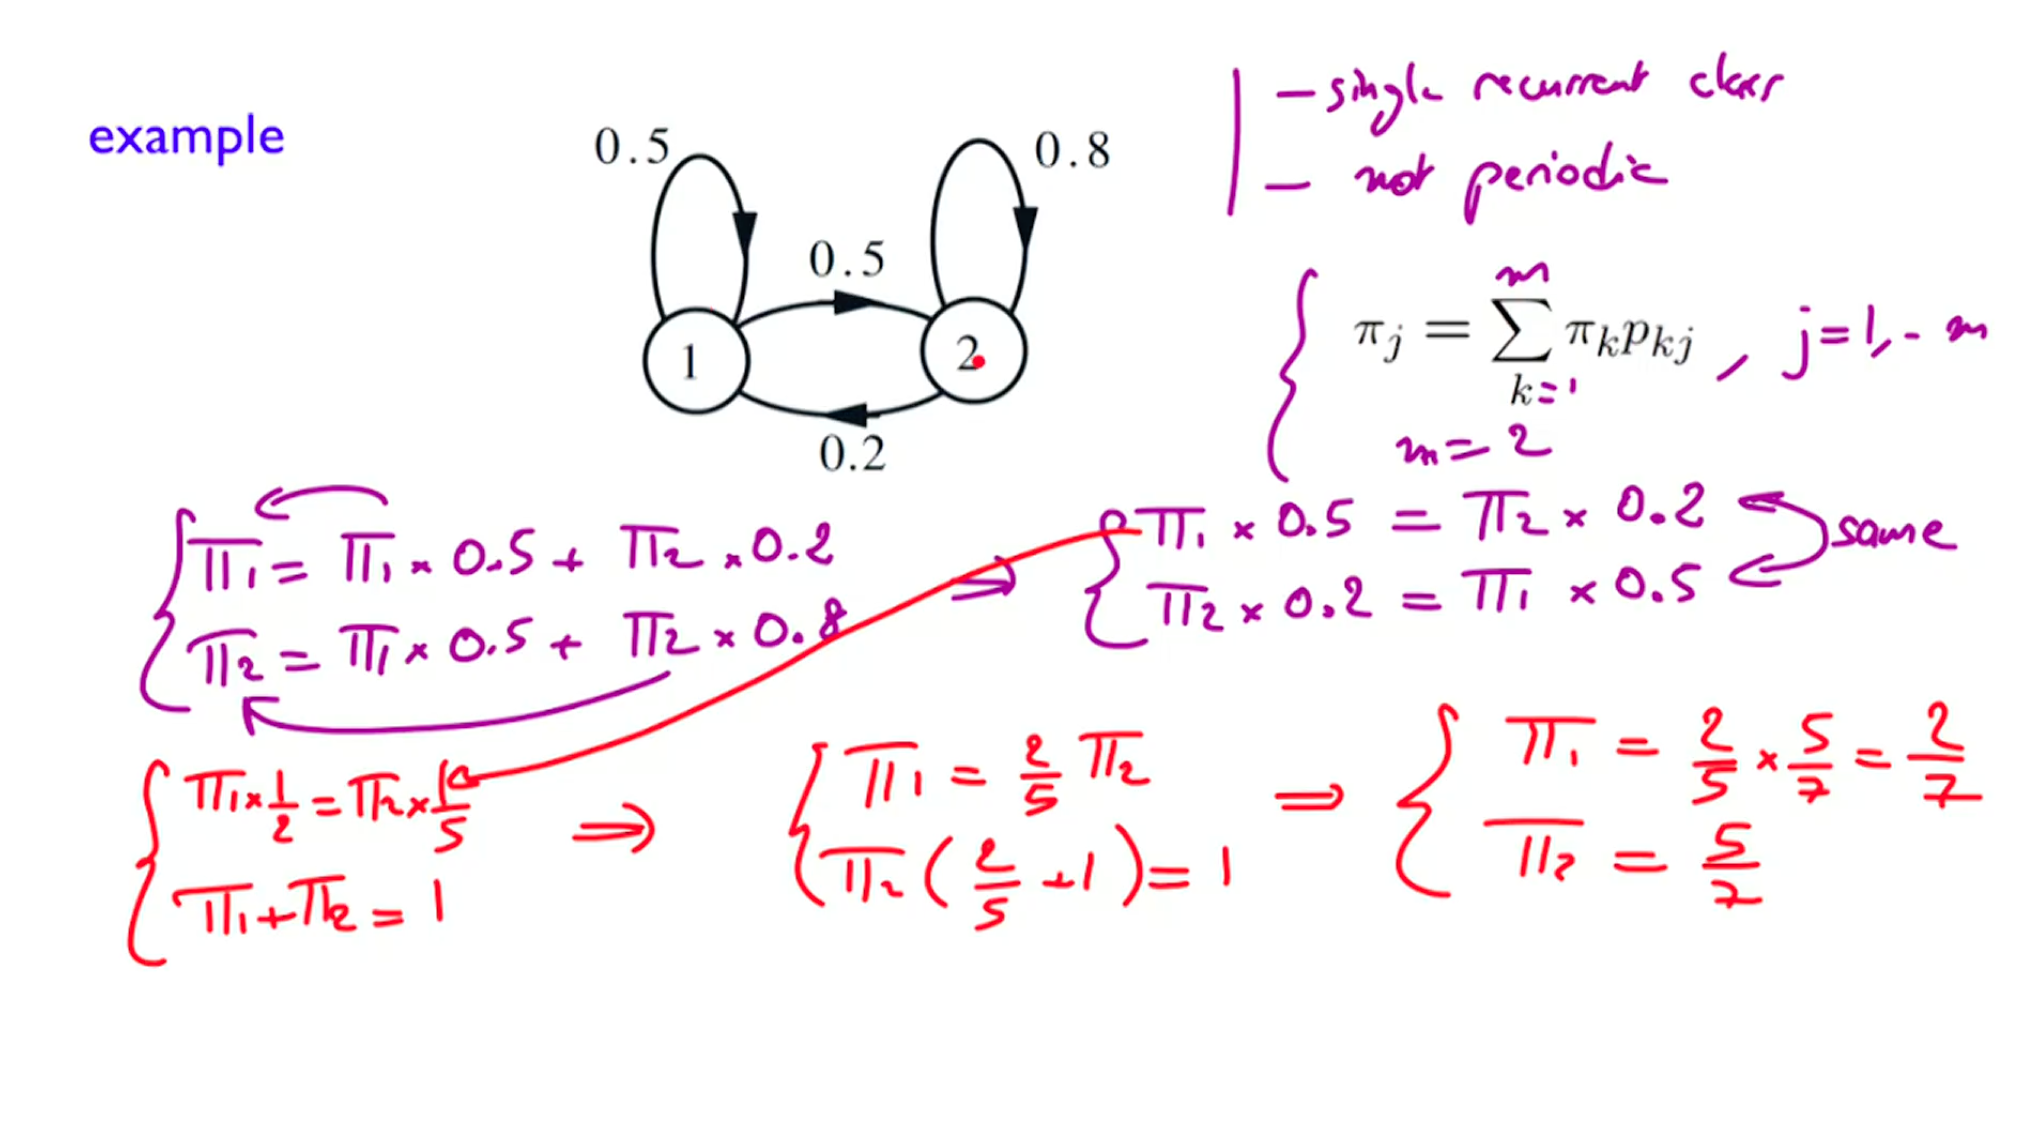 example
0.5
0.8
0.5
1
2
0.2
– single recurrent class
– not periodic
πj = ∑ πk pkj , j=1,- m
m
k=1
m=2
π1 = π1 × 0.5 + π2 × 0.2
π2 = π1 × 0.5 + π2 × 0.8
⇒
π1 × 0.5 = π2 × 0.2
π2 × 0.2 = π1 × 0.5
same
π1 × 1/2 = π2 × 1/5
π1 + π2 = 1
⇒
π1 = 2/5 π2
π2 (2/5 + 1) = 1
⇒
π1 = 2/5 × 5/7 = 2/7
π2 = 5/7